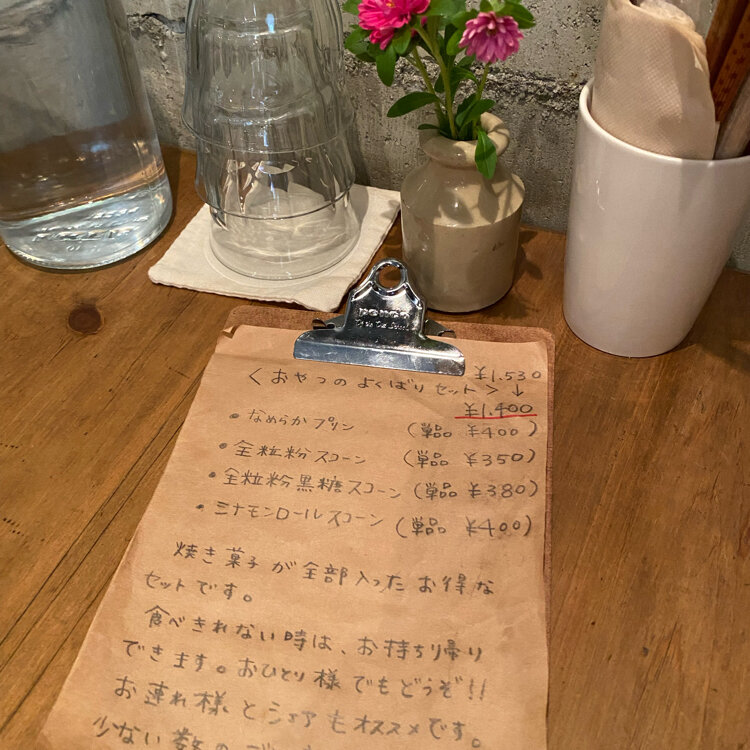 PENCO
¥1.530
<おやつのよくばりセット> ↓
¥1.400
・なめらかプリン (単品 ¥400)
・全粒粉スコーン (単品 ¥350)
・全粒粉黒糖スコーン (単品 ¥380)
・ミナモンロールスコーン (単品 ¥400)
焼き菓子が全部入ったお得な
セットです。
食べきれない時は、お持ち帰り
できます。おひとり様でもどうぞ!!
お連れ様とシェアもオススメです。
少ない数の